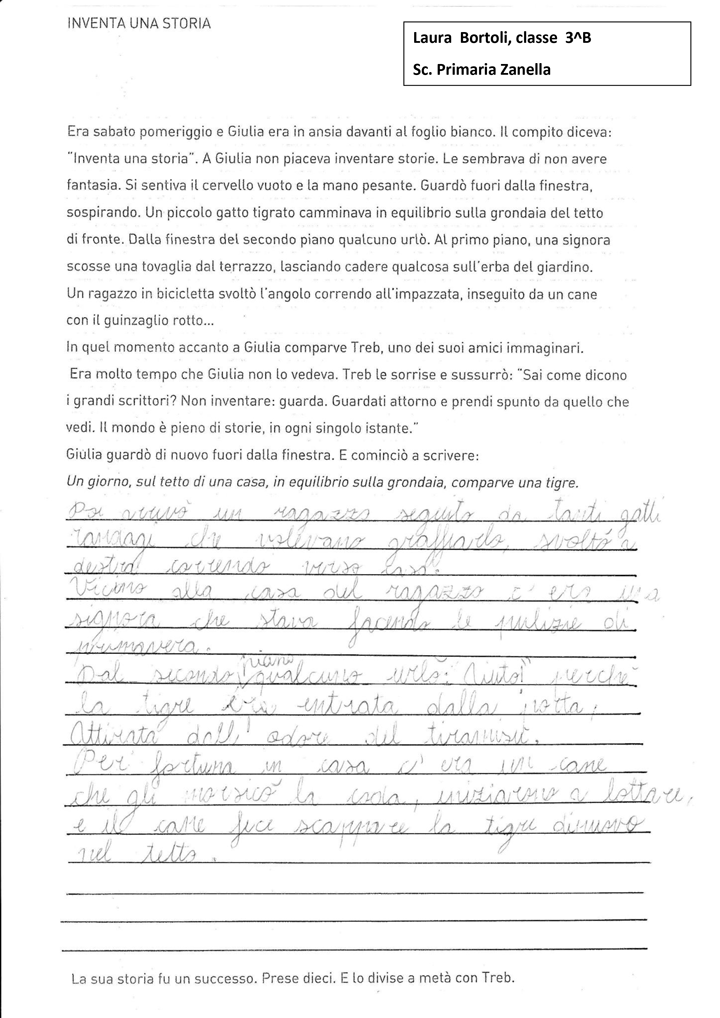 INVENTA UNA STORIA
Laura Bortoli, classe 3^B
Sc. Primaria Zanella
Era sabato pomeriggio e Giulia era in ansia davanti al foglio bianco. Il compito diceva:
"Inventa una storia". A Giulia non piaceva inventare storie. Le sembrava di non avere
fantasia. Si sentiva il cervello vuoto e la mano pesante. Guardò fuori dalla finestra,
sospirando. Un piccolo gatto tigrato camminava in equilibrio sulla grondaia del tetto
di fronte. Dalla finestra del secondo piano qualcuno urlò. Al primo piano, una signora
scosse una tovaglia dal terrazzo, lasciando cadere qualcosa sull'erba del giardino.
Un ragazzo in bicicletta svoltò l'angolo correndo all'impazzata, inseguito da un cane
con il guinzaglio rotto...
In quel momento accanto a Giulia comparve Treb, uno dei suoi amici immaginari.
Era molto tempo che Giulia non lo vedeva. Treb le sorrise e sussurrò: "Sai come dicono
i grandi scrittori? Non inventare: guarda. Guardati attorno e prendi spunto da quello che
vedi. Il mondo è pieno di storie, in ogni singolo istante."
Giulia guardò di nuovo fuori dalla finestra. E cominciò a scrivere:
Un giorno, sul tetto di una casa, in equilibrio sulla grondaia, comparve una tigre.
Poi arrivò un ragazzo seguito da tanti gatti
randagi che volevano graffiarlo, svoltò a
destra correndo verso casa.
Vicino alla casa del ragazzo c'era una
signora che stava facendo le pulizie di
primavera.
Dal secondo piano qualcuno urlò: "Aiuto!" perché
la tigre era entrata dalla porta,
Attirata dall'odore del tiramisù.
Per fortuna in casa c'era un cane
che gli morsicò la coda, iniziarono a lottare,
e il cane fece scappare la tigre dinuovo
nel tetto.
La sua storia fu un successo. Prese dieci. E lo divise a metà con Treb.